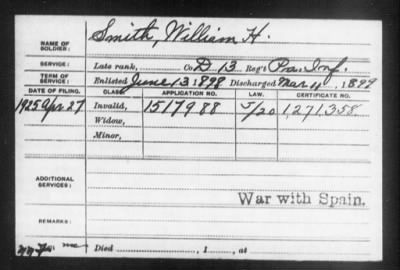 NAME OF SOLDIER: Smith, William H.
SERVICE: Late rank, Co. D 13 Reg't Pa. Inf.
TERM OF SERVICE: Enlisted June 13 1898 Discharged Mar 11, 1899
DATE OF FILING. CLASS. APPLICATION NO. LAW. CERTIFICATE NO.
1925 Apr. 27 Invalid, 1517988 5/20 1,271,358.
Widow,
Minor,
ADDITIONAL SERVICES:
War with Spain.
REMARKS:
Died , 1 , at